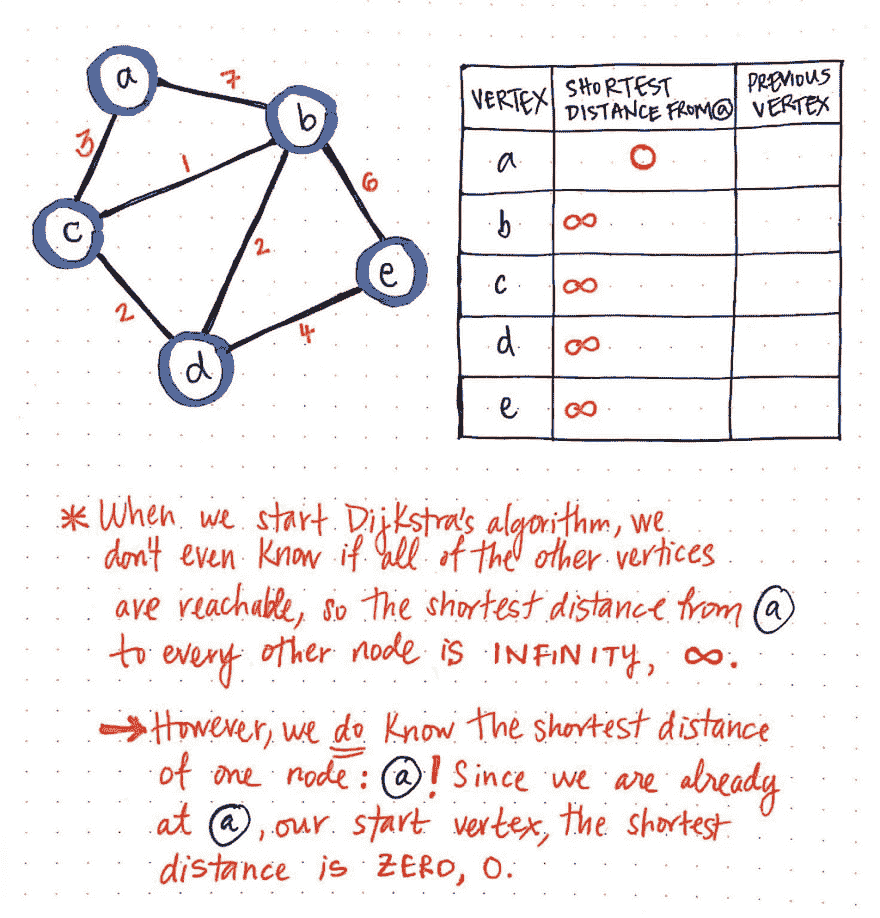 a
7
b
3
1
6
c
2
e
2
4
d
VERTEX SHORTEST DISTANCE FROM ⓐ PREVIOUS VERTEX
a 0
b ∞
c ∞
d ∞
e ∞
* When we start Dijkstra's algorithm, we
don't even know if all of the other vertices
are reachable, so the shortest distance from ⓐ
to every other node is INFINITY, ∞.
→ However, we do know the shortest distance
of one node: ⓐ! Since we are already
at ⓐ, our start vertex, the shortest
distance is ZERO, 0.